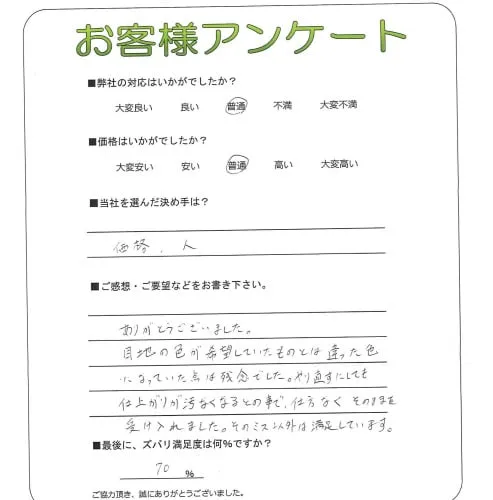 お客様アンケート
■弊社の対応はいかがでしたか?
大変良い 良い 普通 不満 大変不満
■価格はいかがでしたか?
大変安い 安い 普通 高い 大変高い
■当社を選んだ決め手は?
価格、人
■ご感想・ご要望などをお書き下さい。
ありがとうございました。
目地の色が希望していたものとは違った色
になっていた点は残念でした。やり直すにしても
仕上がりが汚なくなるとの事で、仕方なくそのまま
受け入れました。そのミス以外は満足しています。
■最後に、ズバリ満足度は何%ですか?
70 %
ご協力頂き、誠にありがとうございました。